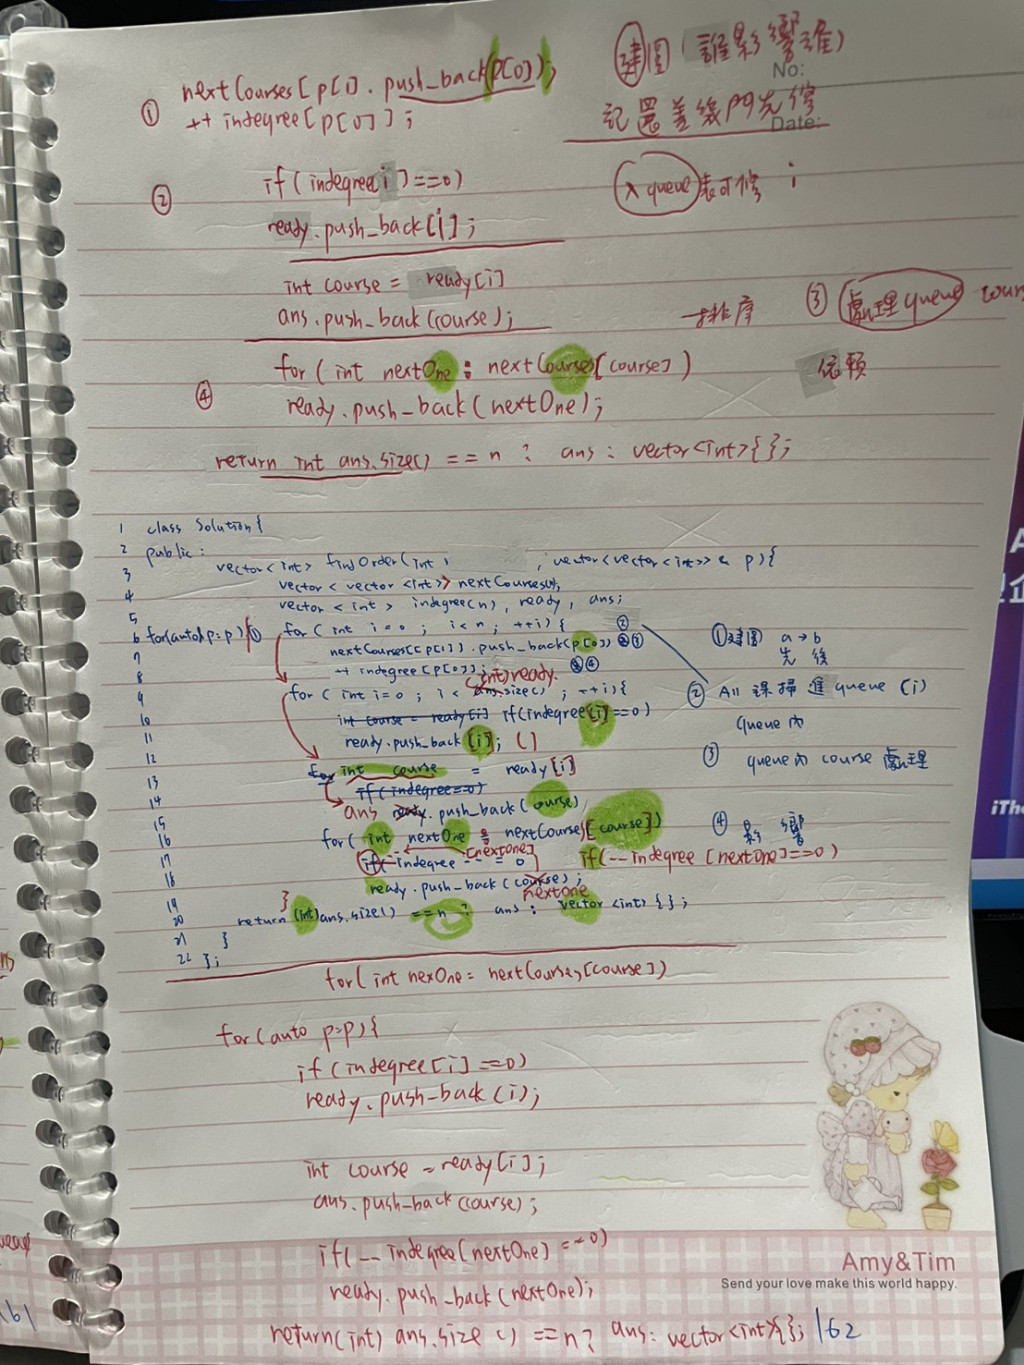 建圖 (誰影響誰)
No:
① nextCourses[p[1].push_back(p[0]);
++ indegree[p[0]];
記還差幾門先修
Date:
② if(indegree[i]==0)
ready.push_back[i];
入queue表可修 i
int course = ready[i]
ans.push_back(course);
排序 ③ 處理queue cour
④ for( int nextOne : nextCourses[course])
ready.push_back(nextOne);
依賴
return int ans.size() == n ? ans : vector<int>{};
1 class Solution{
2 public:
3 vector<int> findOrder(int , vector<vector<int>> & p){
4 vector< vector <int>> nextCourses(n);
5 vector <int> indegree(n), ready, ans;
6 for(auto& p:p) ① for( int i=0 ; i<n ; ++i){ ②
7 nextCourses[p[1]].push_back(p[0]) ①
8 ++ indegree[p[0]]; ④
9 for( int i=0 ; i< (int)ready.size() ; ++i){
10 int course = ready[i] if(indegree[i]==0)
11 ready.push_back[i]; ()
12
13 for int course = ready[i]
14 if(indegree==0)
15 ans ready.push_back(course)
16 for( int nextOne : nextCourses[course])
17 if(--indegree[nextOne] == 0 if(--indegree[nextOne]==0)
18 ready.push_back(course);
nextone
19 }
20 return (int)ans.size() ==n ? ans : vector <int>{};
21 }
22 };
①建圖 a→b
先 後
② All 課掃進queue (i)
queue內
③ queue內 course 處理
④ 影響
for(int nexOne = nextCourses[course])
for(auto p:p){
if(indegree[i]==0)
ready.push_back(i);
int course = ready[i];
ans.push_back(course);
if(--indegree(nextOne]==0)
ready.push_back(nextOne);
return(int) ans.size() ==n? ans: vector<int>{}; 162
Amy&Tim
Send your love make this world happy.
iTh